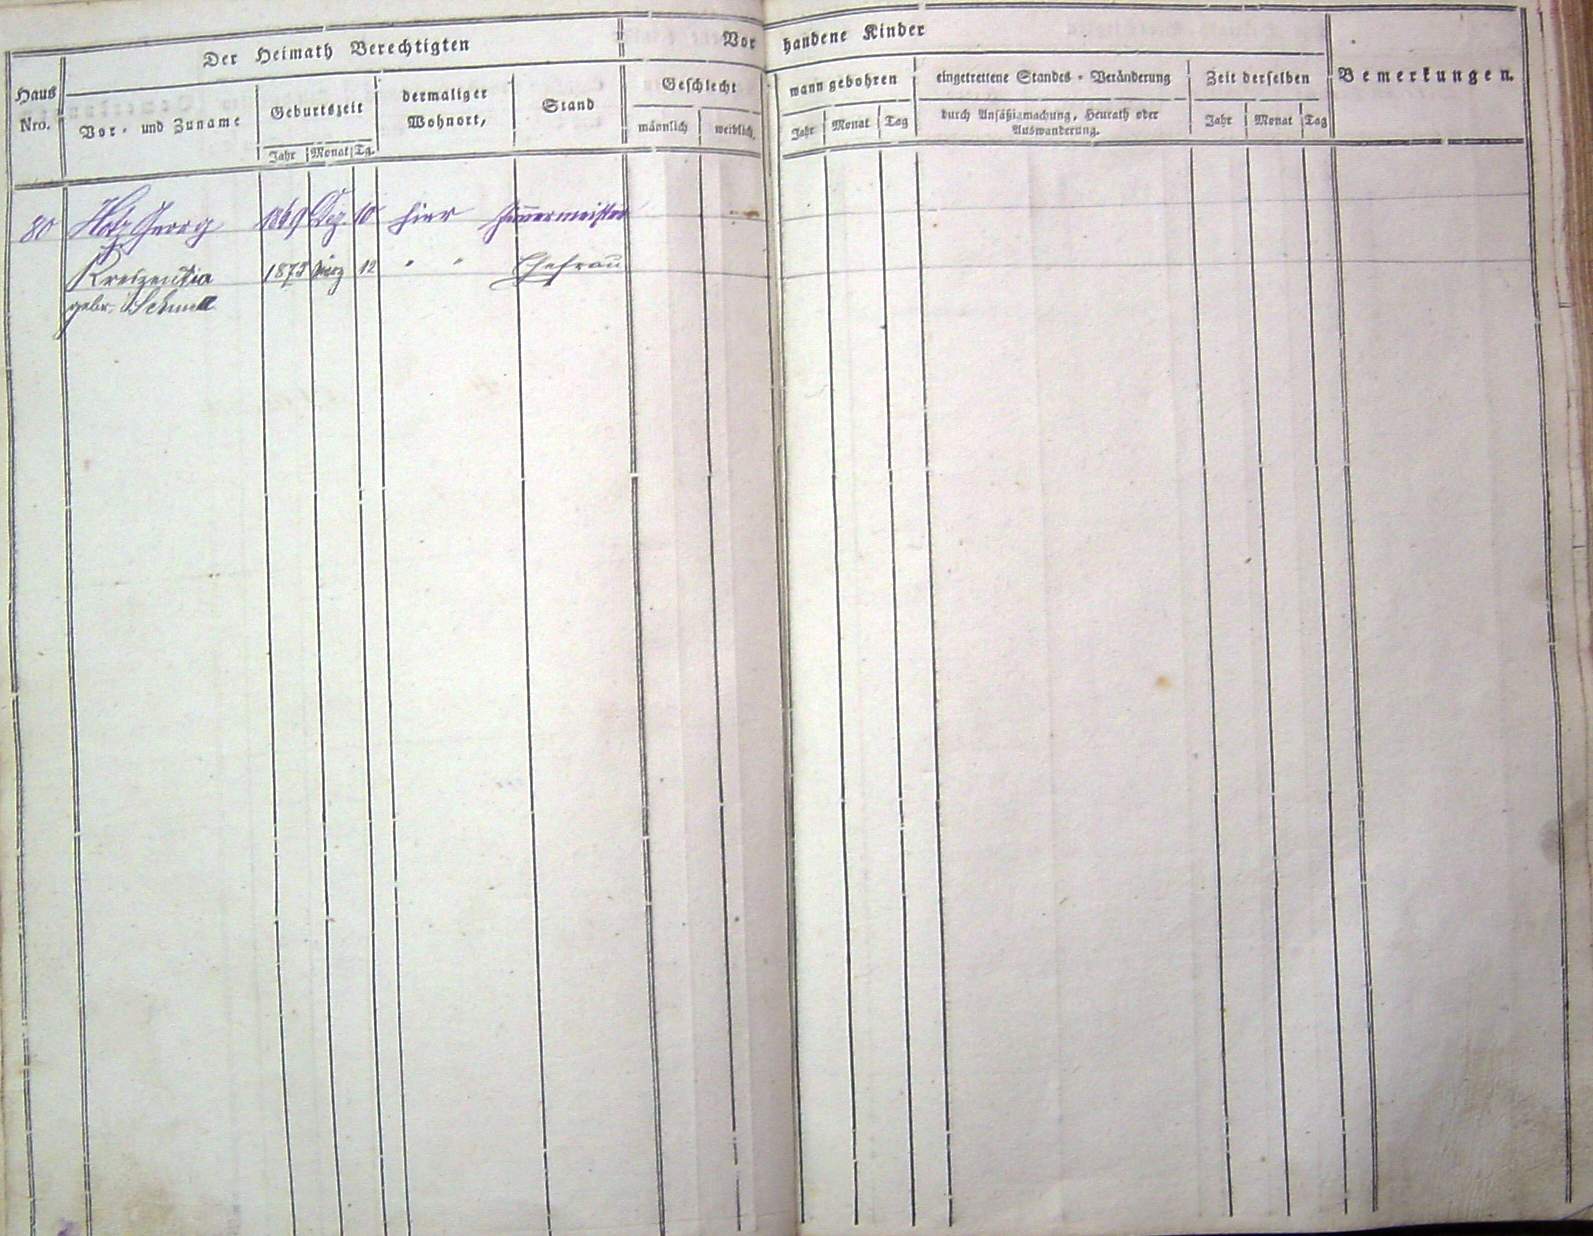 Der Heimath Berechtigten
Vorhandene Kinder
Haus Nro.
Vor- und Zuname
Geburtszeit
Jahr Monat Tg.
dermaliger Wohnort,
Stand
Geschlecht
männlich weiblich.
wann gebohren
Jahr Monat Tag
eingetrettene Standes-Veränderung
durch Ansäßigmachung, Heurath oder
Auswanderung.
Zeit derselben
Jahr Monat Tag
Bemerkungen.
80 Georg 1869 Dez. 10 hier
Kreszentia 1873 März 12 " " Ehefrau
gebr.